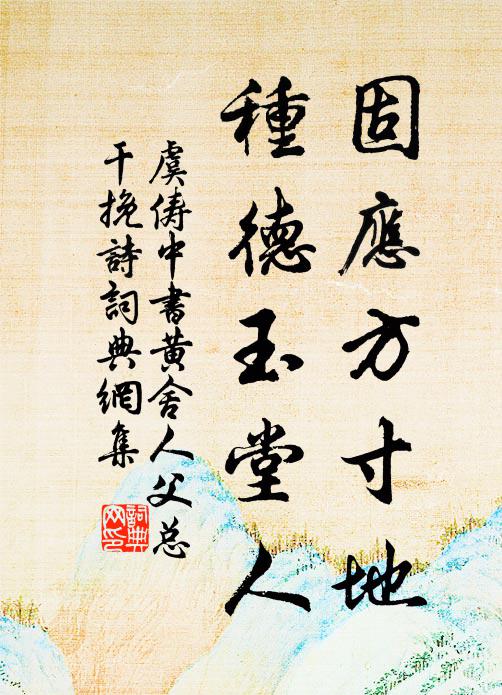 固應方寸地
種德玉堂人
虞儔中書黃舍人父总
干挽詩詞典網集
詞典
网印